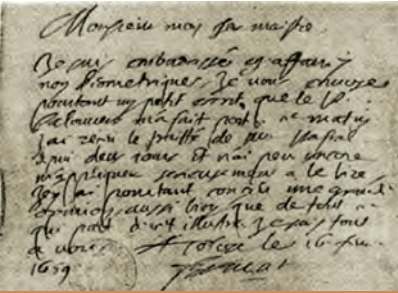 Monsieur mon cher maistre
Je suis embarassé et affairé
non Geometriques. Je vous envoye
pourtant un petit escrit que le P.
m'a fait part ce matin
J'ai receu le traitté de Mr
depuis deux jours Et n'ai peu encore
m'appliquer serieusement a le lire
J'en ai pourtant conceu une grande
opinion aussi bien que de tout ce
qui part d'illustre. Je suis tout
a vous A le 16 fev.
1659 Fermat